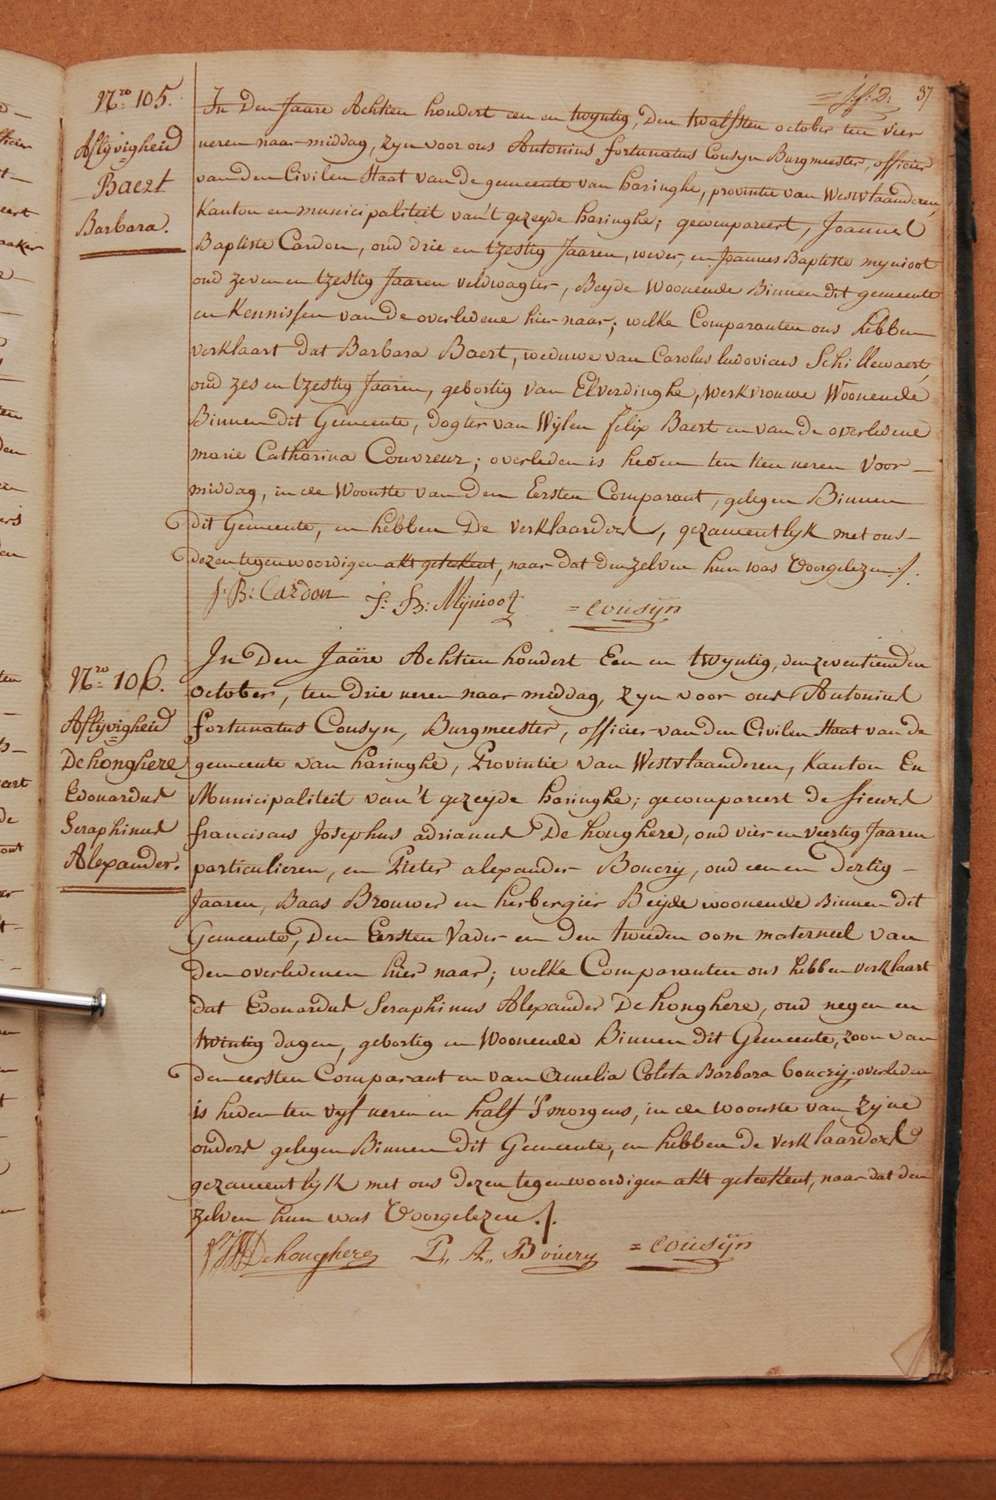 37
Nro 105.
Aflijvigheid
Baert
Barbara.
In Den Jaare Achtien hondert een en twyntig, Den twalfsten october ten vier
ueren naar-middag, zyn voor ons Antonius fortunatus Cousyn Burgmeester, officier
van den Civilen Staat van de gemeente van haringhe, provintie van Westvlaanderen,
Kanton en municipaliteit van't gezeyde haringhe; gecompareert, Joannes
Baptiste Cardon, oud drie en tzestig Jaaren, wever, en Joannes Baptiste mynioot
oud zeven en tzestig Jaaren veldwagter, Beyde Woonende Binnen dit gemeente
en Kennissen van de overledene hier naar; welke Comparanten ons hebben
verklaart dat Barbara Baert, weduwe van Carolus ludovicus Schillewaert,
oud zes en tzestig Jaaren, gebortig van Elverdinghe, werkvrouwe Woonende
Binnen dit Gemeente, dogter van Wylen felix Baert en van de overledene
marie Catharina Couvreur; overleden is heden ten tien ueren voor-
middag, in de Woonste van den Eersten Comparant, gelegen Binnen
dit Gemeente, en hebben De verklaarders, gezamentlyk met ons
dezen tegenwoordigen akt geteekent, naar dat den zelven hun was Voorgelezen ./.
J: B: Cardon J: B: Mijnioot = cousijn
Nro 106.
Aflijvigheid
De honghere
Edouardus
Seraphinus
Alexander.
In Den Jaäre Achtien hondert Een en twyntig, den zeventienden
october, ten drie ueren naar middag, zyn voor ons Antonius
fortunatus Cousyn, Burgmeester, officier van den Civilen Staat van de
gemeente van haringhe, Provintie van Westvlaanderen, Kanton En
Municipaliteit van't gezeyde haringhe; gecompareert de sieurs
franciscus Josephus adrianus De honghere, oud vier en veertig Jaaren
particulieren, en Pieter alexander Boucry, oud een en dertig
Jaaren, Baas Brouwer en herbergier Beyde woonende Binnen dit
Gemeente, Den Eersten Vader en den tweeden oom materneel van
den overledenen hier naar; welke Comparanten ons hebben verklaart
dat Edouardus Seraphinus Alexander De honghere, oud negen en
twintig dagen, gebortig en Woonende Binnen dit Gemeente, zoon van
den eersten Comparant en van Amelia Coleta Barbara boucry; overleden
is heden ten vyf ueren en half 's morgens, in de woonste van zyne
ouders gelegen Binnen dit Gemeente, en hebben de verklaarders
gezamentlyk met ons dezen tegenwoordigen akt geteekent, naar dat den
zelven hun was Voorgelezen ./.
De honghere P. A. Boucry = cousijn